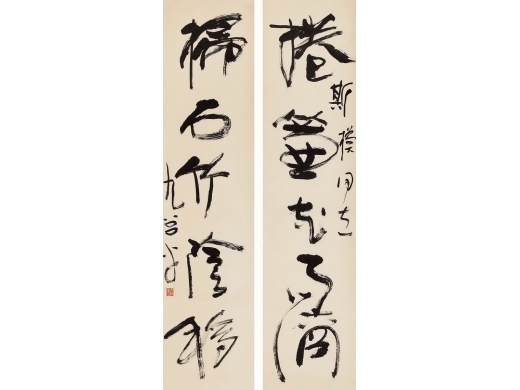 捲簾花雨滴
斯模同志
掃石竹陰移